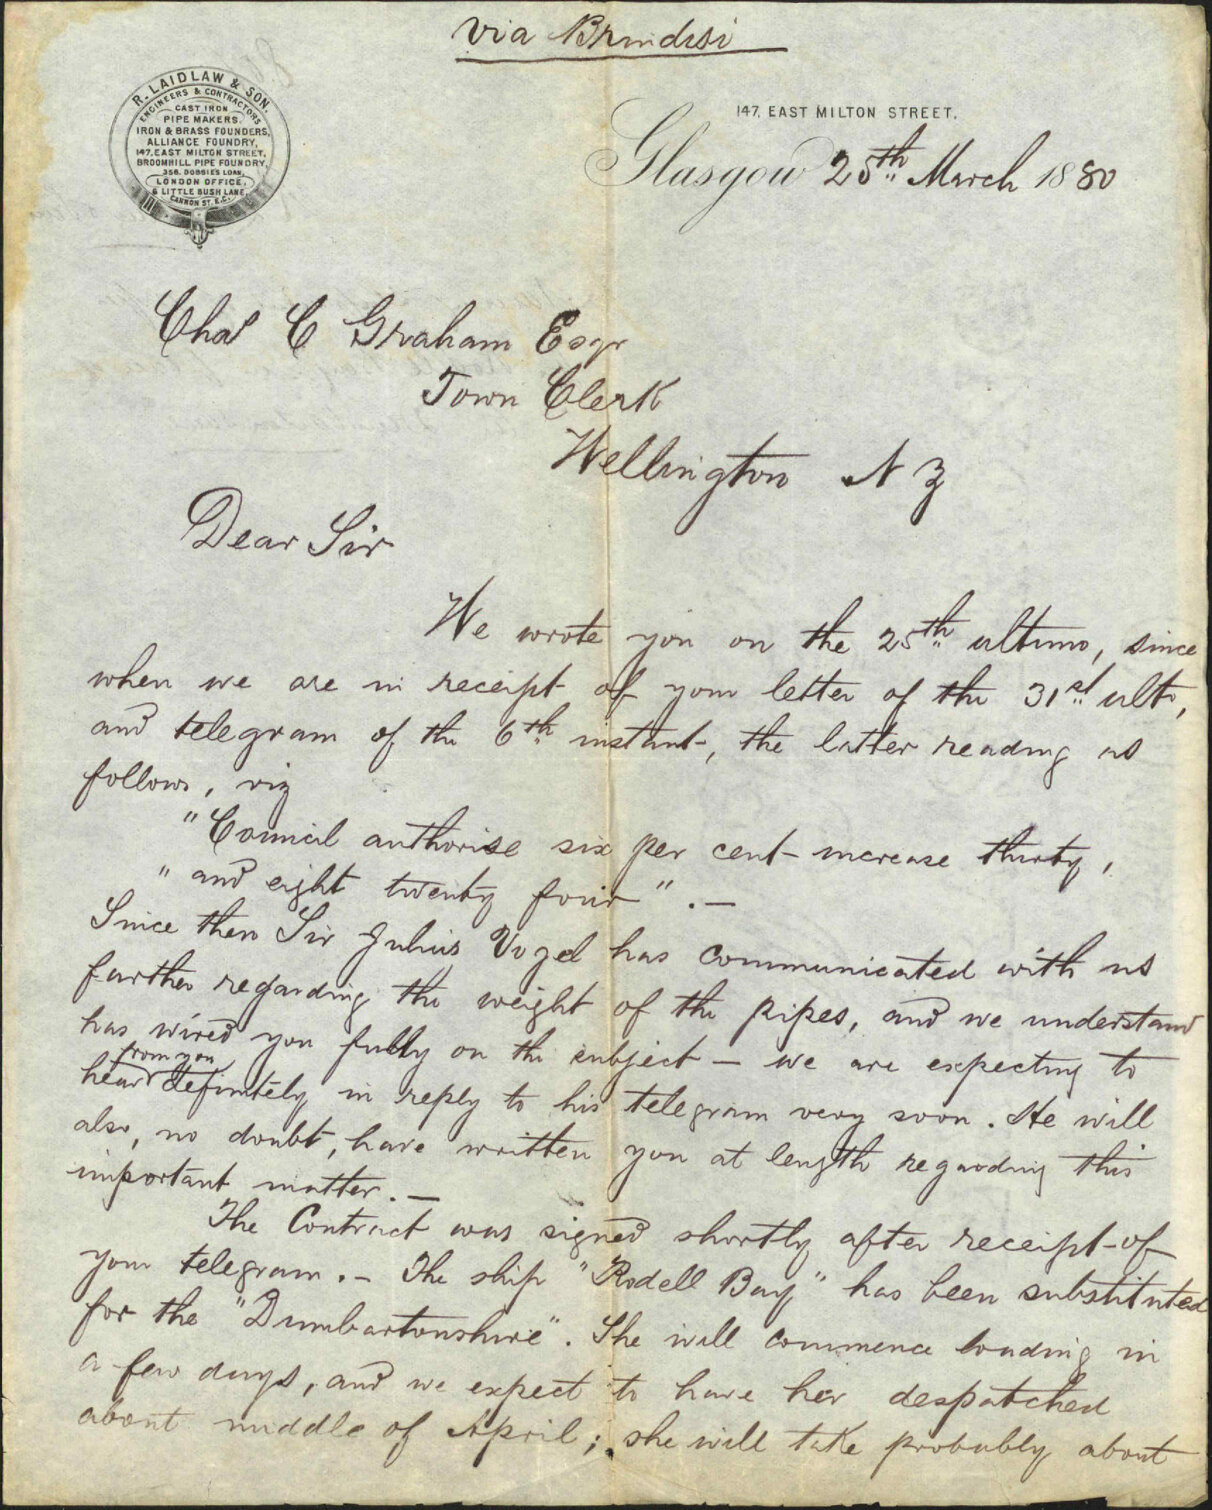 via Brindisi
R. LAIDLAW & SON.
ENGINEERS & CONTRACTORS
CAST IRON
PIPE MAKERS,
IRON & BRASS FOUNDERS,
ALLIANCE FOUNDRY,
147, EAST MILTON STREET,
BROOMHILL PIPE FOUNDRY,
356, DOBBIES LOAN,
LONDON OFFICE,
6 LITTLE BUSH LANE
CANNON ST. E.C.
147, EAST MILTON STREET.
Glasgow 25th March 1880
Chas C Graham Esqr
Town Clerk
Wellington N Z
Dear Sir
We wrote you on the 25th ultimo, since
when we are in receipt of your letter of the 31st ulto,
and telegram of the 6th instant, the latter reading as
follows, viz
"Council authorise six per cent increase thirty,
" and eight twenty four" . —
Since then Sir Julius Vogel has communicated with us
further regarding the weight of the pipes, and we understand
has wired you fully on the subject — we are expecting to
hear from you definitely in reply to his telegram very soon. He will
also, no doubt, have written you at length regarding this
important matter. —
The Contract was signed shortly after receipt of
your telegram. — The ship "Rodell Bay" has been substituted
for the "Dumbartonshire". She will commence loading in
a few days, and we expect to have her despatched
about middle of April; she will take probably about